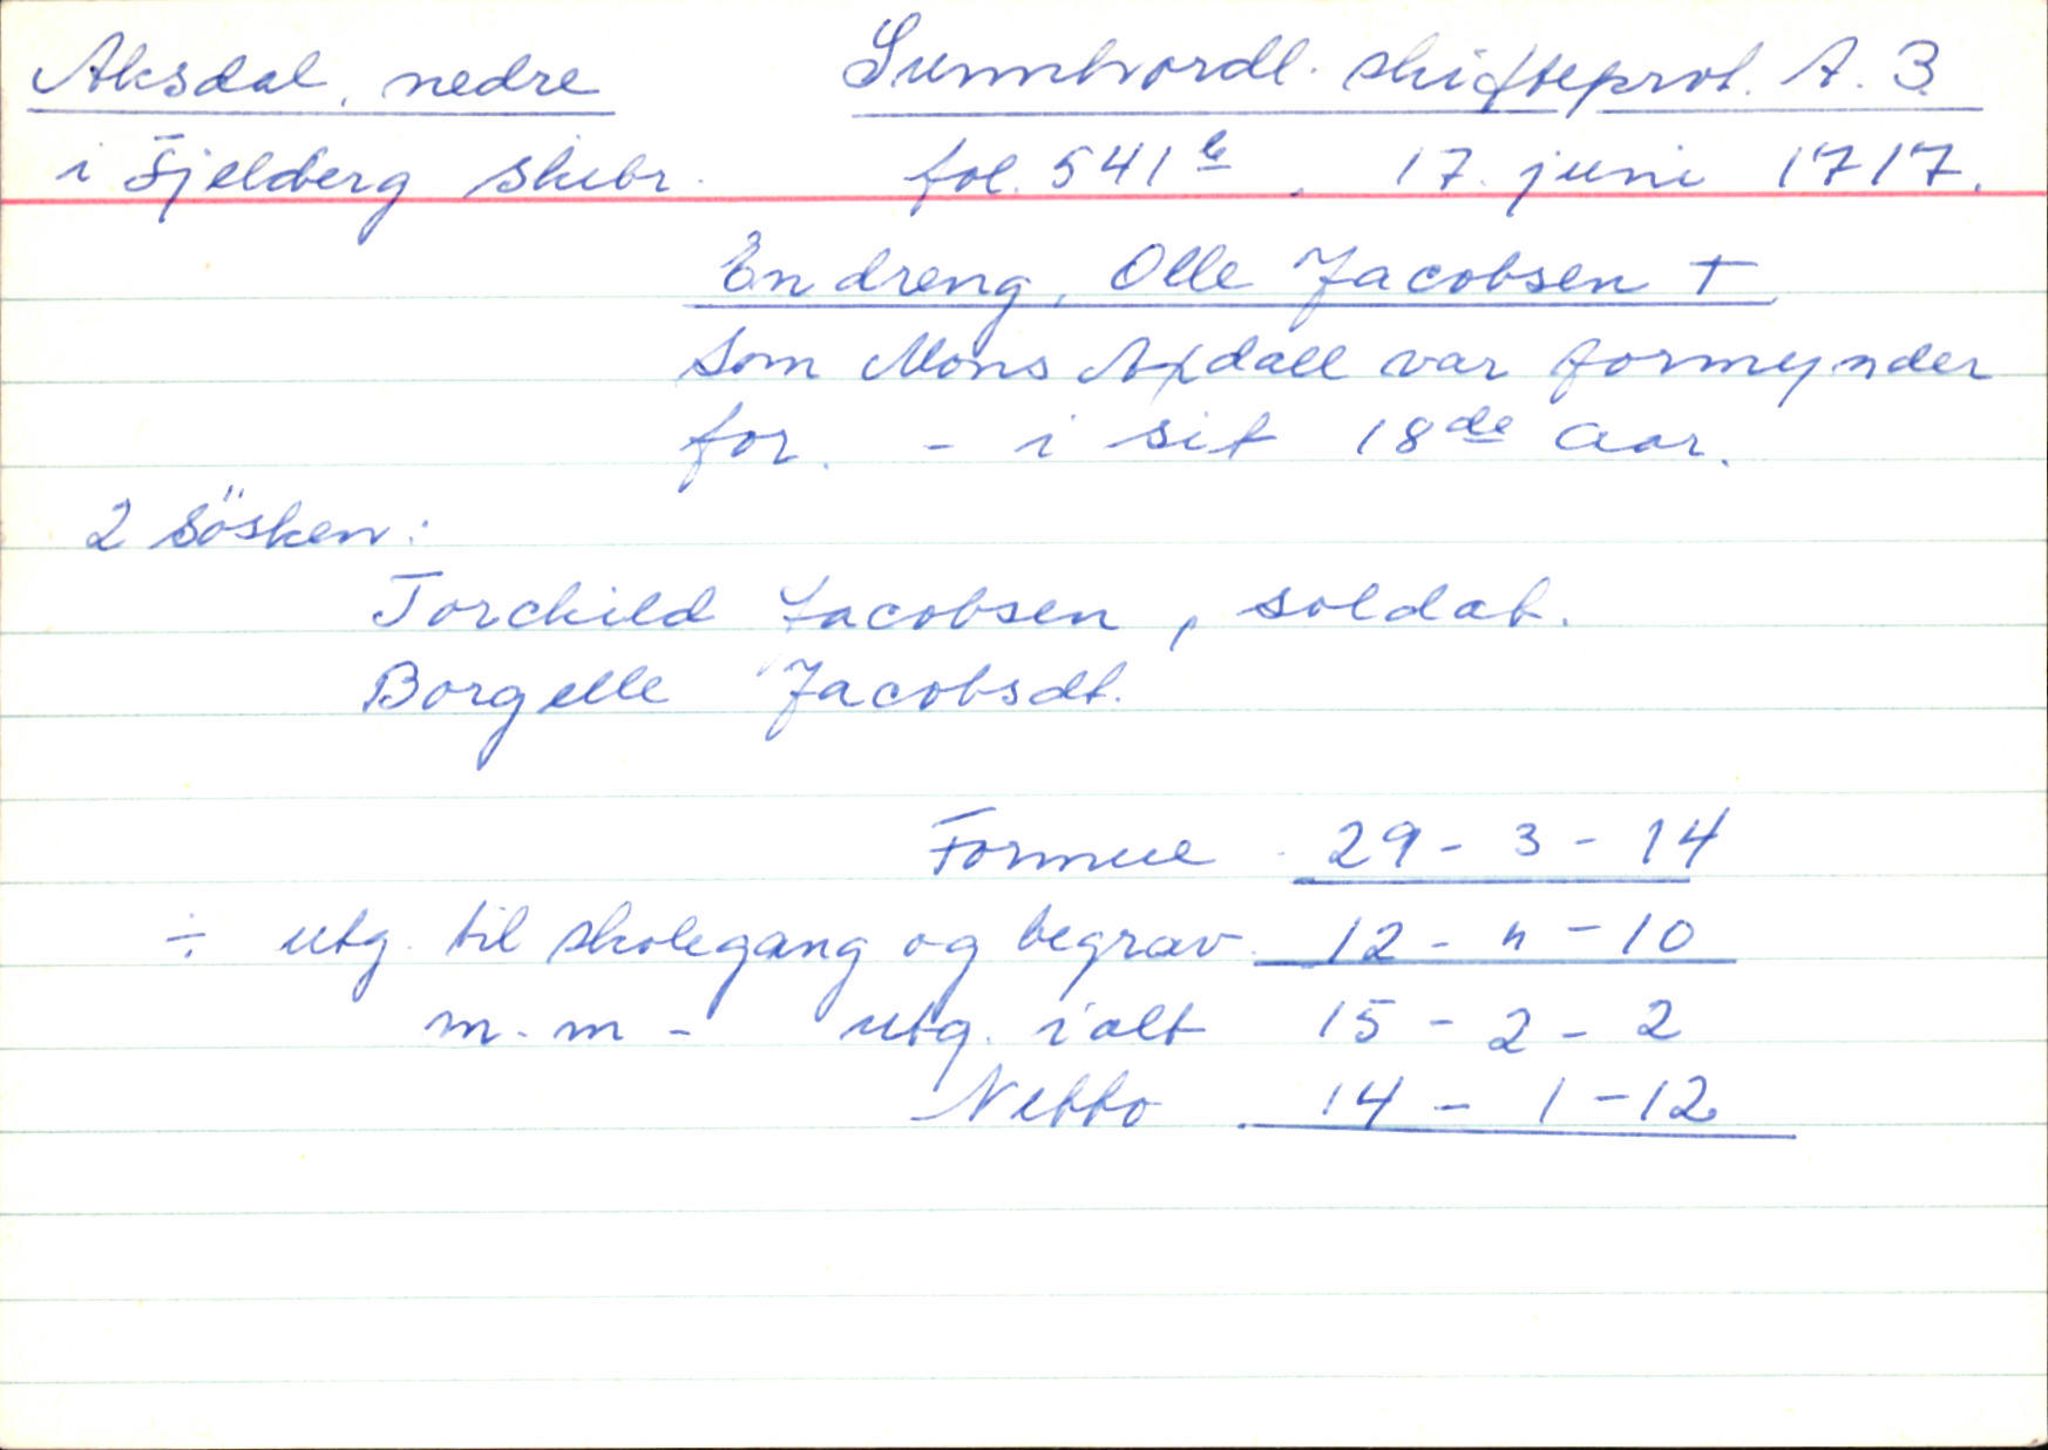 Aksdal, nedre Sunnhordl. skifteprot. A. 3
i Fjelberg skibr. fol. 541 b. 17. juni 1717.
En dreng, Olle Jacobsen †
som Mons Axdall var formynder
for. - i sit 18de aar.
2 sösken:
Torchild Jacobsen, soldat.
Borgelle Jacobsdt.
Formue 29 - 3 - 14
÷ utg. til skolegang og begrav. 12 - " - 10
m. m - utg. ialt 15 - 2 - 2
Netto 14 - 1 - 12